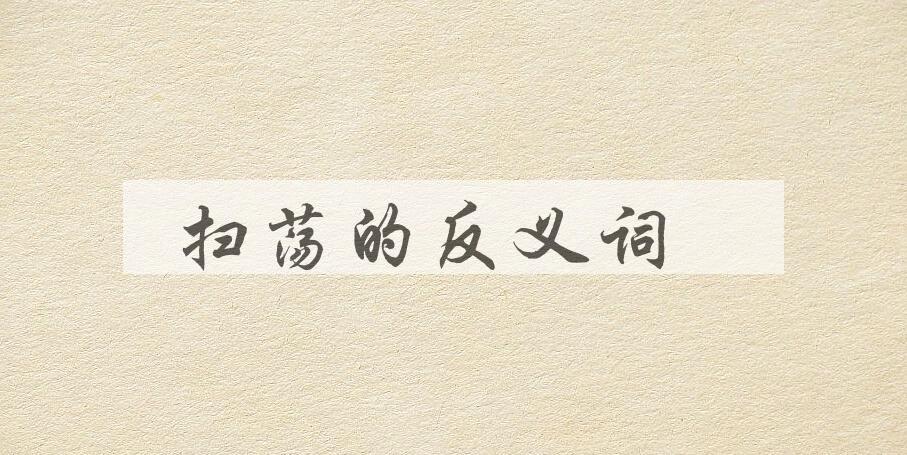 扫荡的反义词